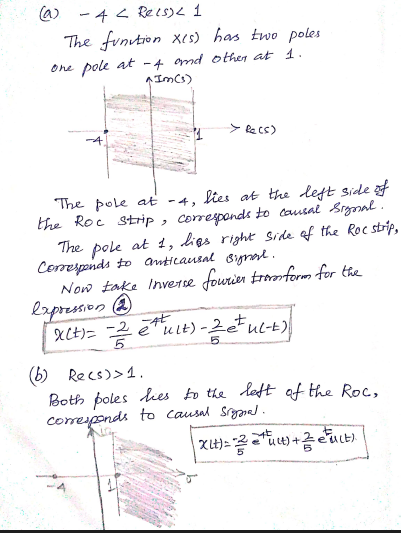 (a) -4 < Re(s) < 1
The funution X(s) has two poles
one pole at -4 and other at 1.
Im(s)
-4 1 Re(s)
The pole at -4, lies at the left side of
the Roc strip, corresponds to causal signal.
The pole at 1, lies right side of the Roc strip,
Corresponds to anticausal signal.
Now take Inverse fourier transform for the
Expression ②
x(t) = -2/5 e^-4t u(t) - 2/5 e^t u(-t)
(b) Re(s) > 1.
Both poles lies to the left of the Roc,
corresponds to causal signal.
x(t) = -2/5 e^-4t u(t) + 2/5 e^t u(t).
-4 1